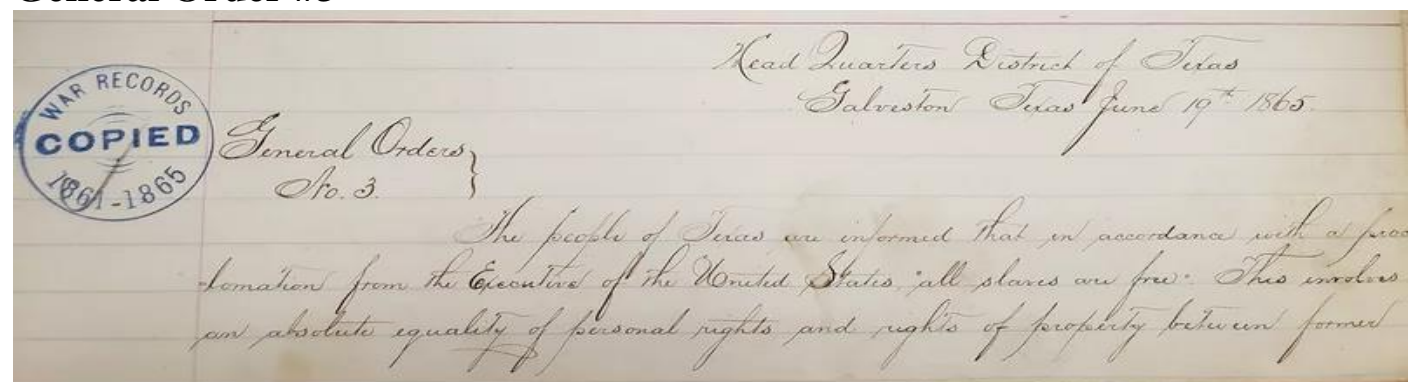 Head Quarters District of Texas
Galveston Texas June 19th 1865.
WAR RECORDS
COPIED
1861-1865
General Orders
No. 3.
The people of Texas are informed that in accordance with a proc
-lamation from the Executive of the United States, "all slaves are free". This involves
an absolute equality of personal rights and rights of property between former